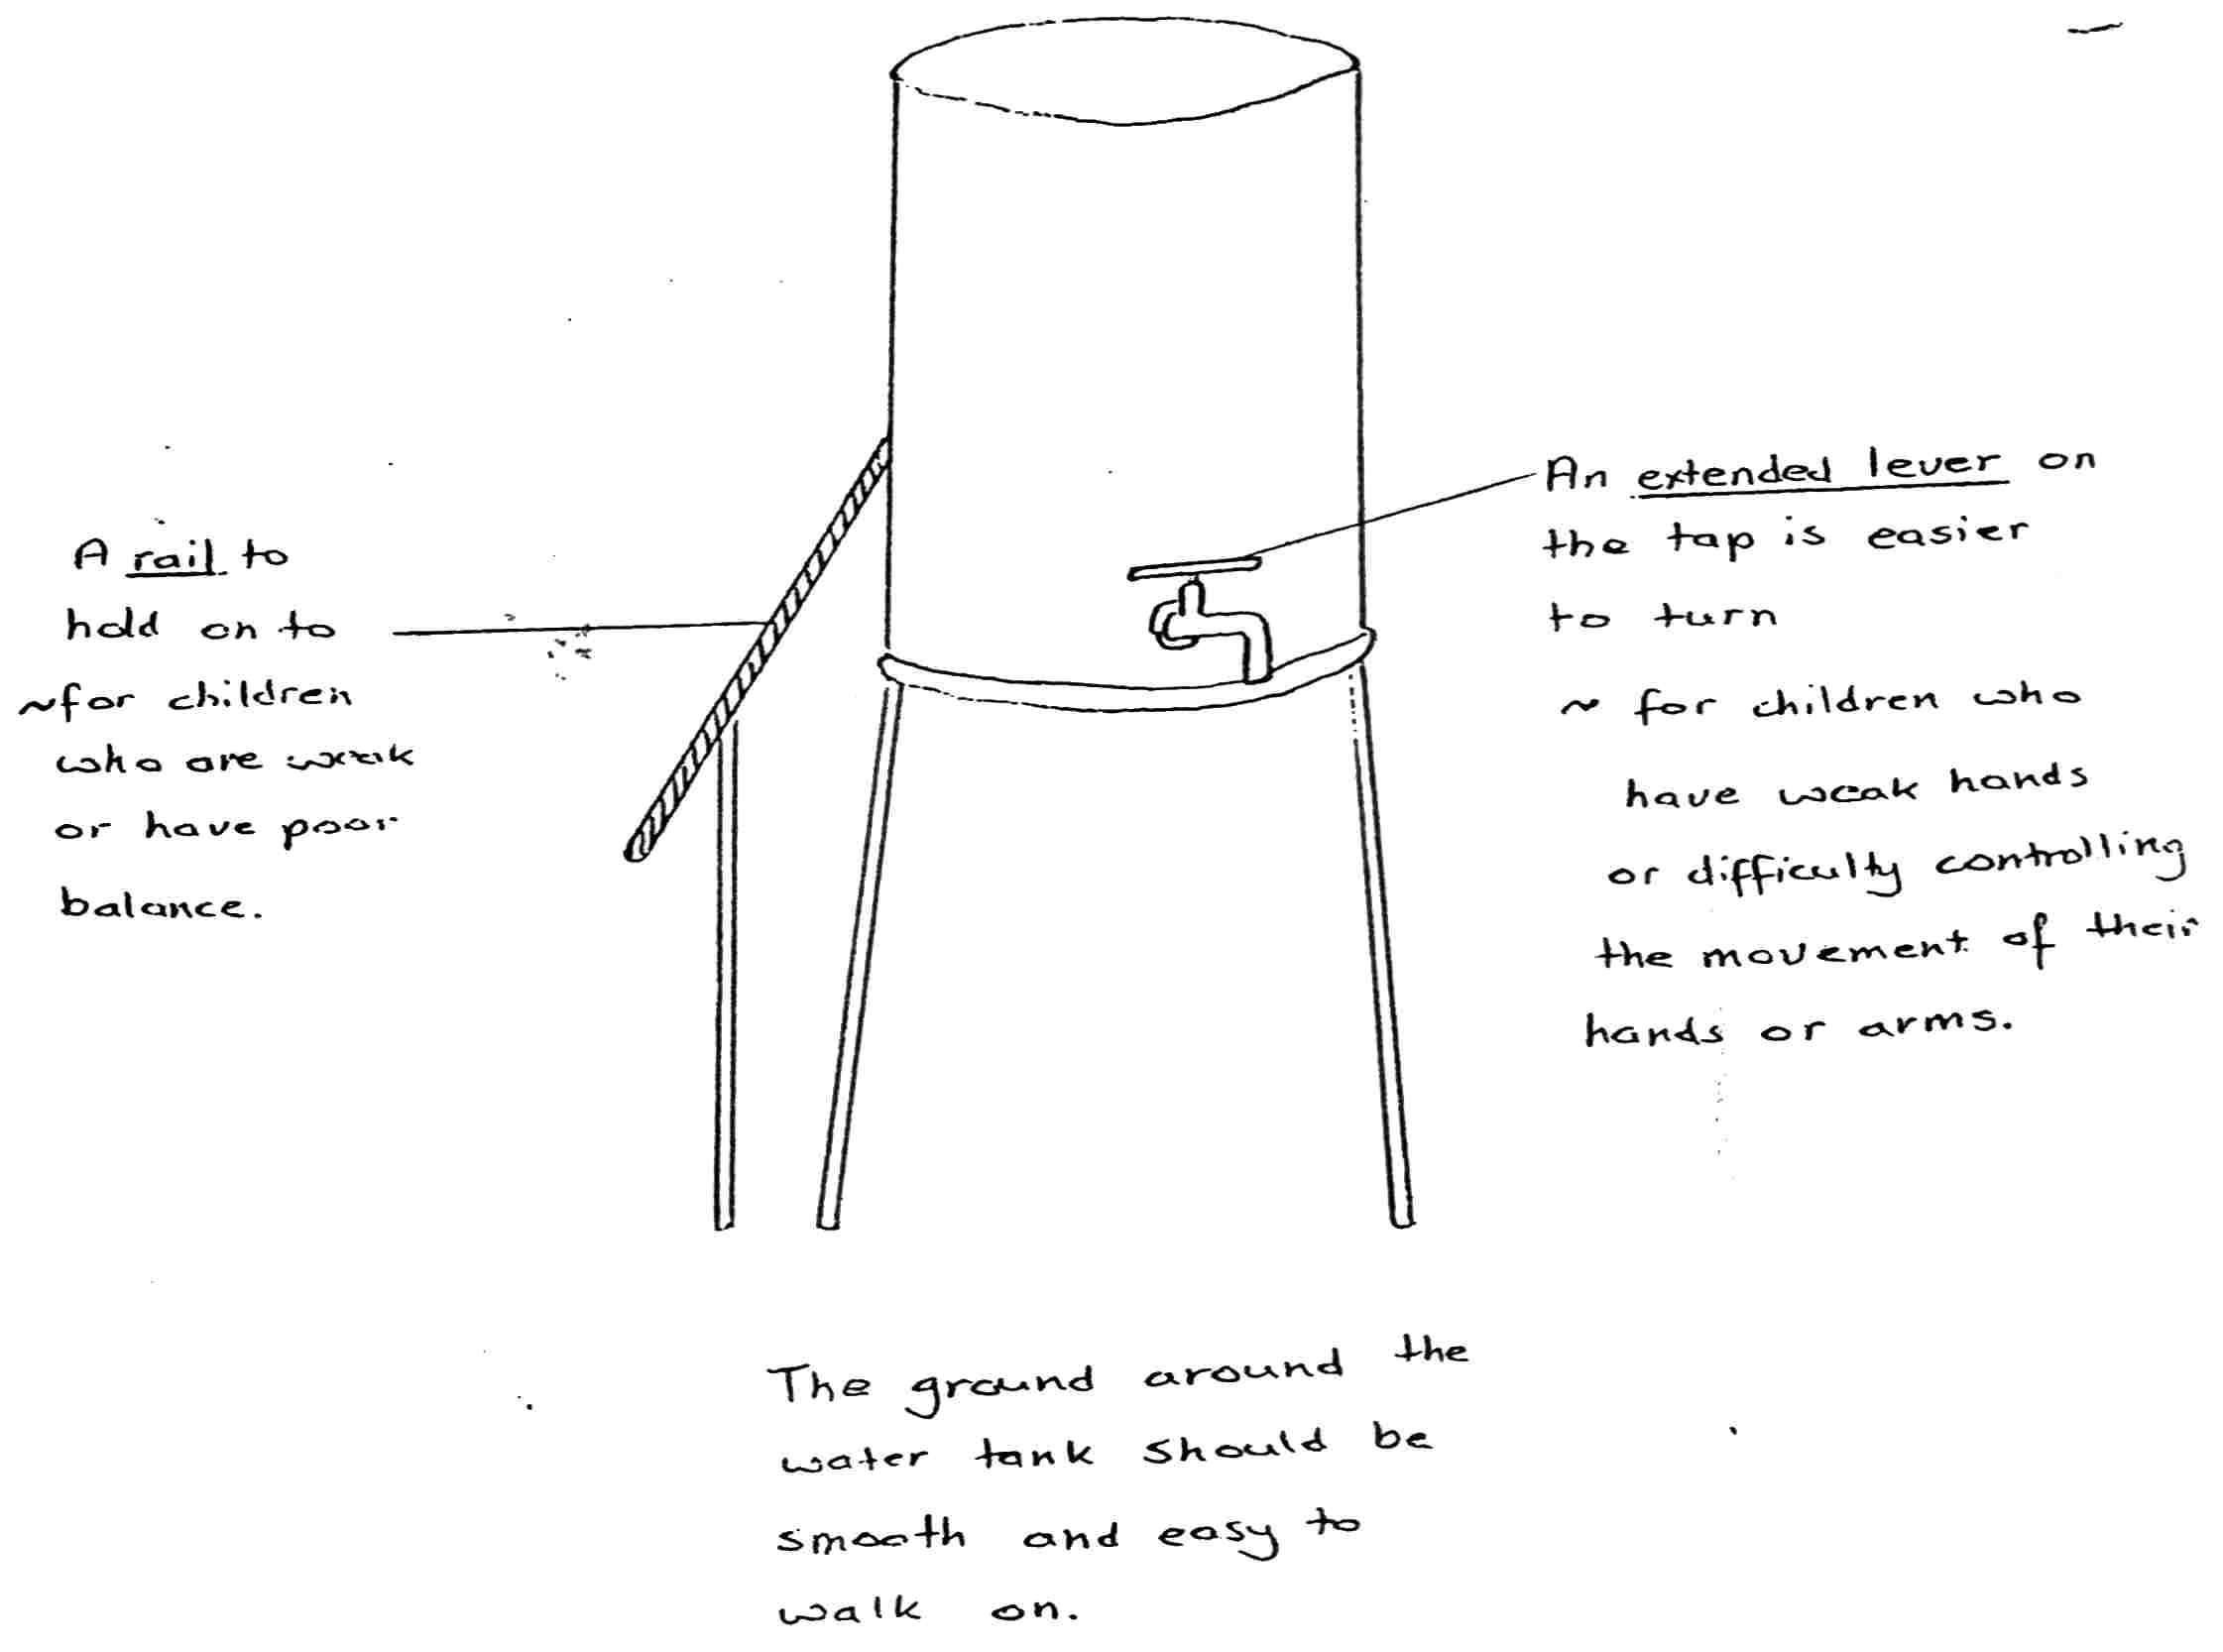 A rail to
hold on to
~for children
who are weak
or have poor
balance.
An extended lever on
the tap is easier
to turn
~ for children who
have weak hands
or difficulty controlling
the movement of their
hands or arms.
The ground around the
water tank should be
smooth and easy to
walk on.